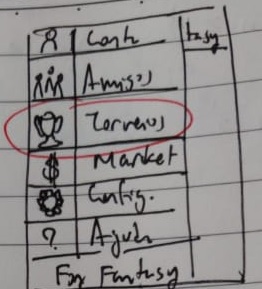 Conta
Amigos
Torneios
$ Market
Config.
? Ajuda
Fantasy